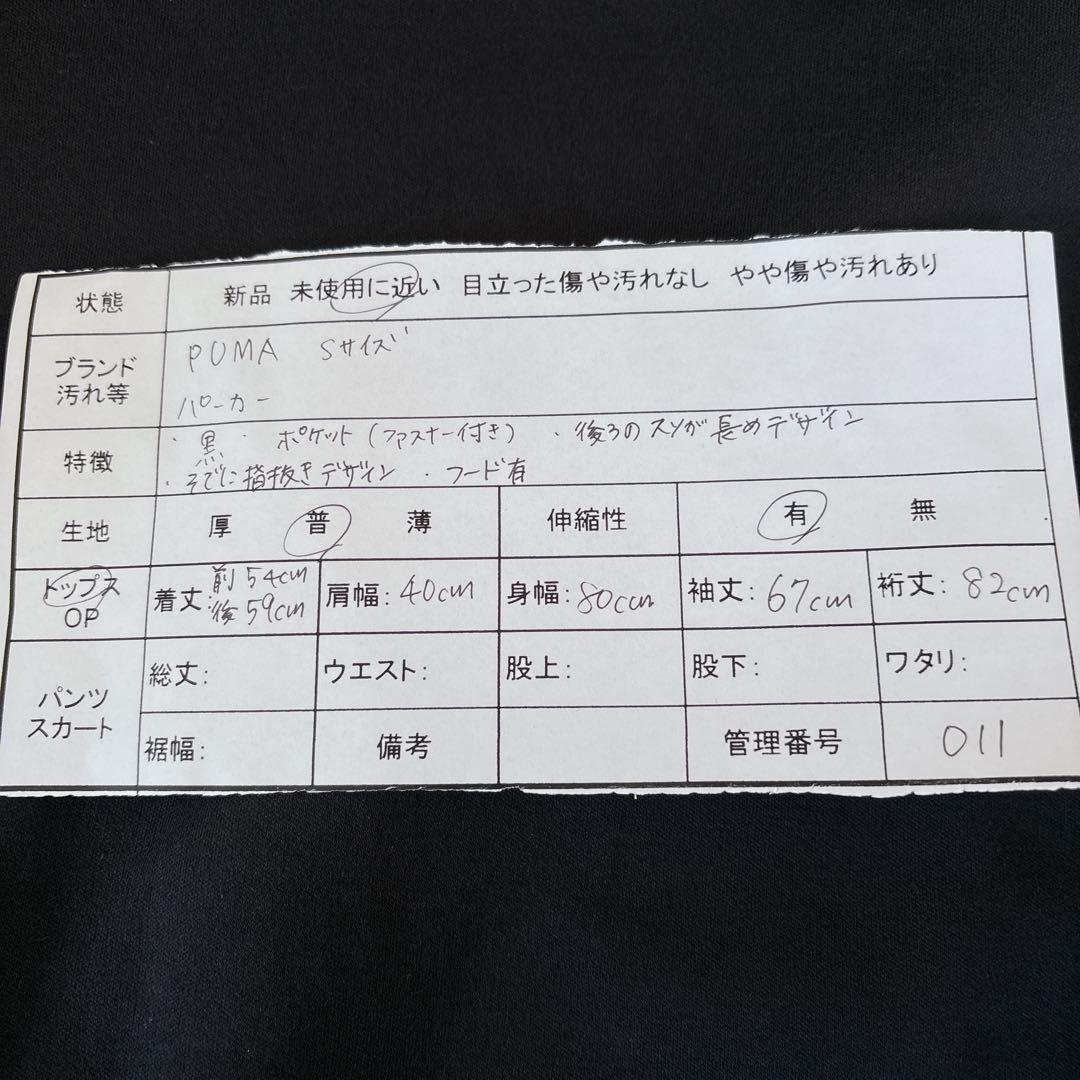 状態 新品 未使用に近い 目立った傷や汚れなし やや傷や汚れあり
ブランド
汚れ等
PUMA Sサイズ
パーカー
特徴
・黒 ・ポケット(ファスナー付き) ・後ろのスソが長めデザイン
・そでに指抜きデザイン ・フード有
生地 厚 普 薄 伸縮性 有 無
トップス
OP
着丈: 前54cm
後59cm
肩幅: 40cm 身幅: 80cm 袖丈: 67cm 裄丈: 82cm
パンツ
スカート
総丈: ウエスト: 股上: 股下: ワタリ:
裾幅: 備考 管理番号 011